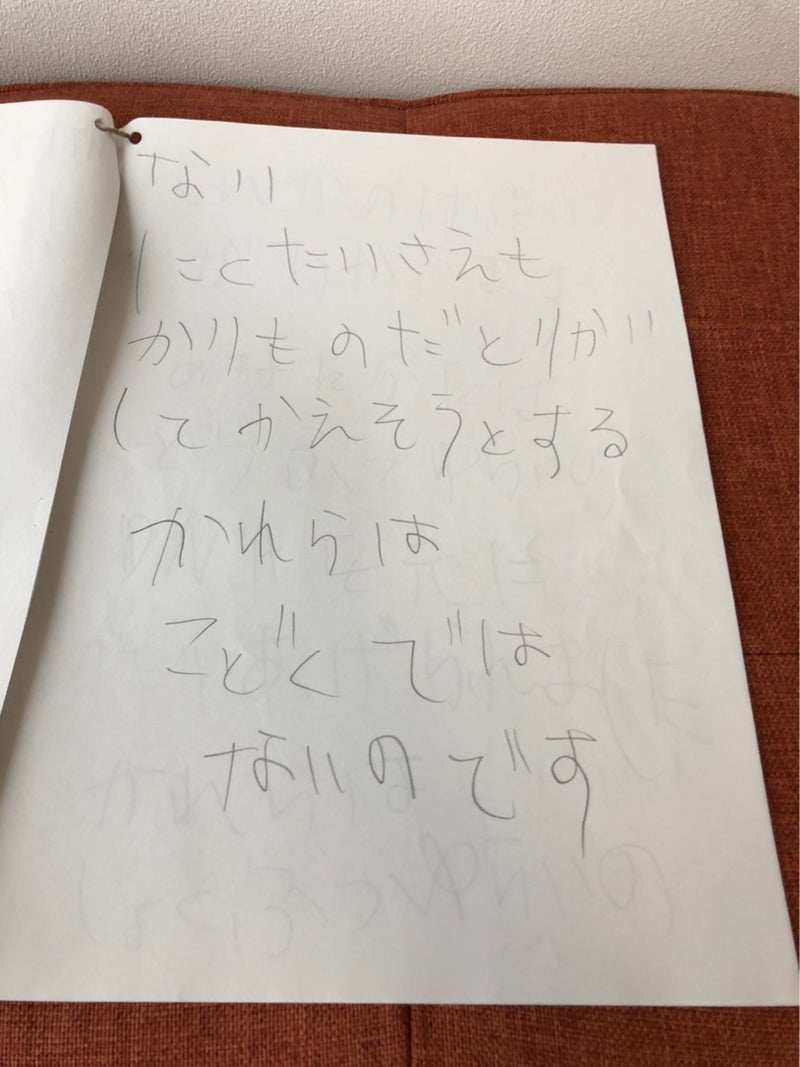 ない
にくたいさえも
かりものだとりかい
してかえそうとする
かれらは
こどくでは
ないのです